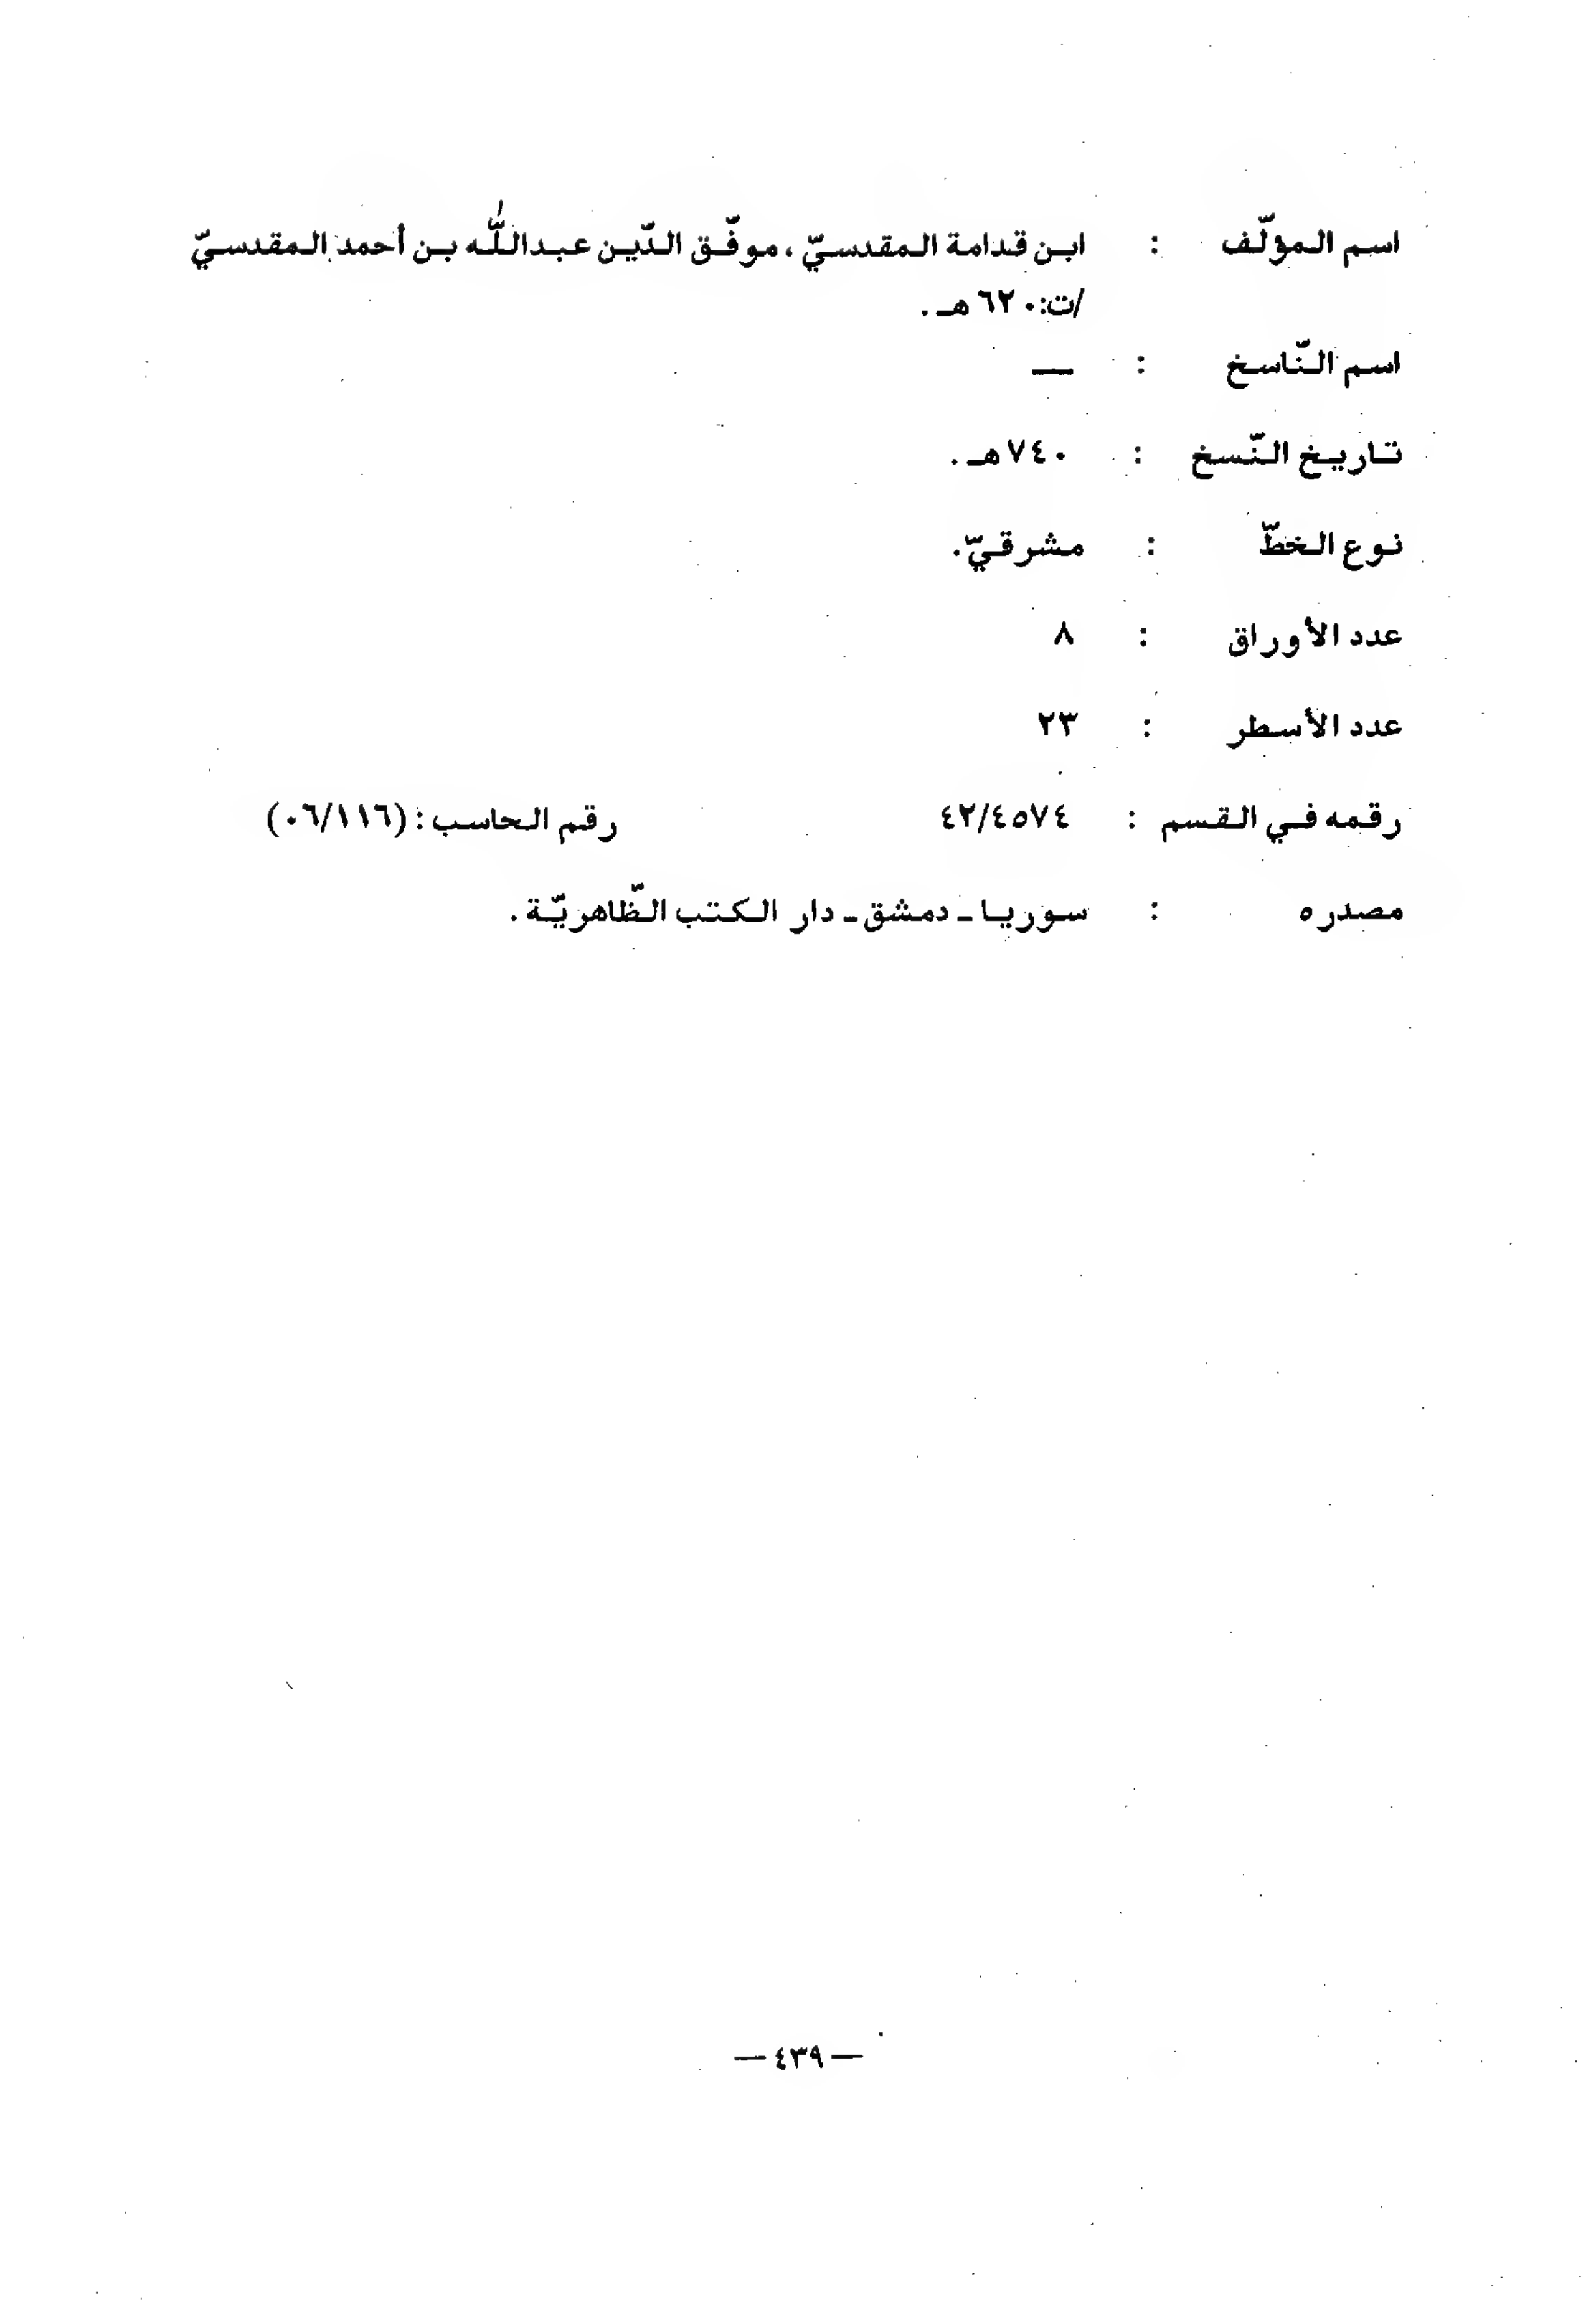 اسم المؤلّف : ابن قدامة المقدسيّ، موفّق الدّين عبداللّٰه بن أحمد المقدسيّ
/ت:٦٢٠هـ.
اسم النّاسخ : —
تاريخ النّسخ : ٧٤٠هـ.
نوع الخطّ : مشرقيّ.
عدد الأوراق : ٨
عدد الأسطر : ٢٣
رقمه في القسم : ٤٢/٤٥٧٤ رقم الحاسب: (٠٦/١١٦)
مصدره : سوريا ـ دمشق ـ دار الكتب الظّاهريّة.
— ٤٣٩ —